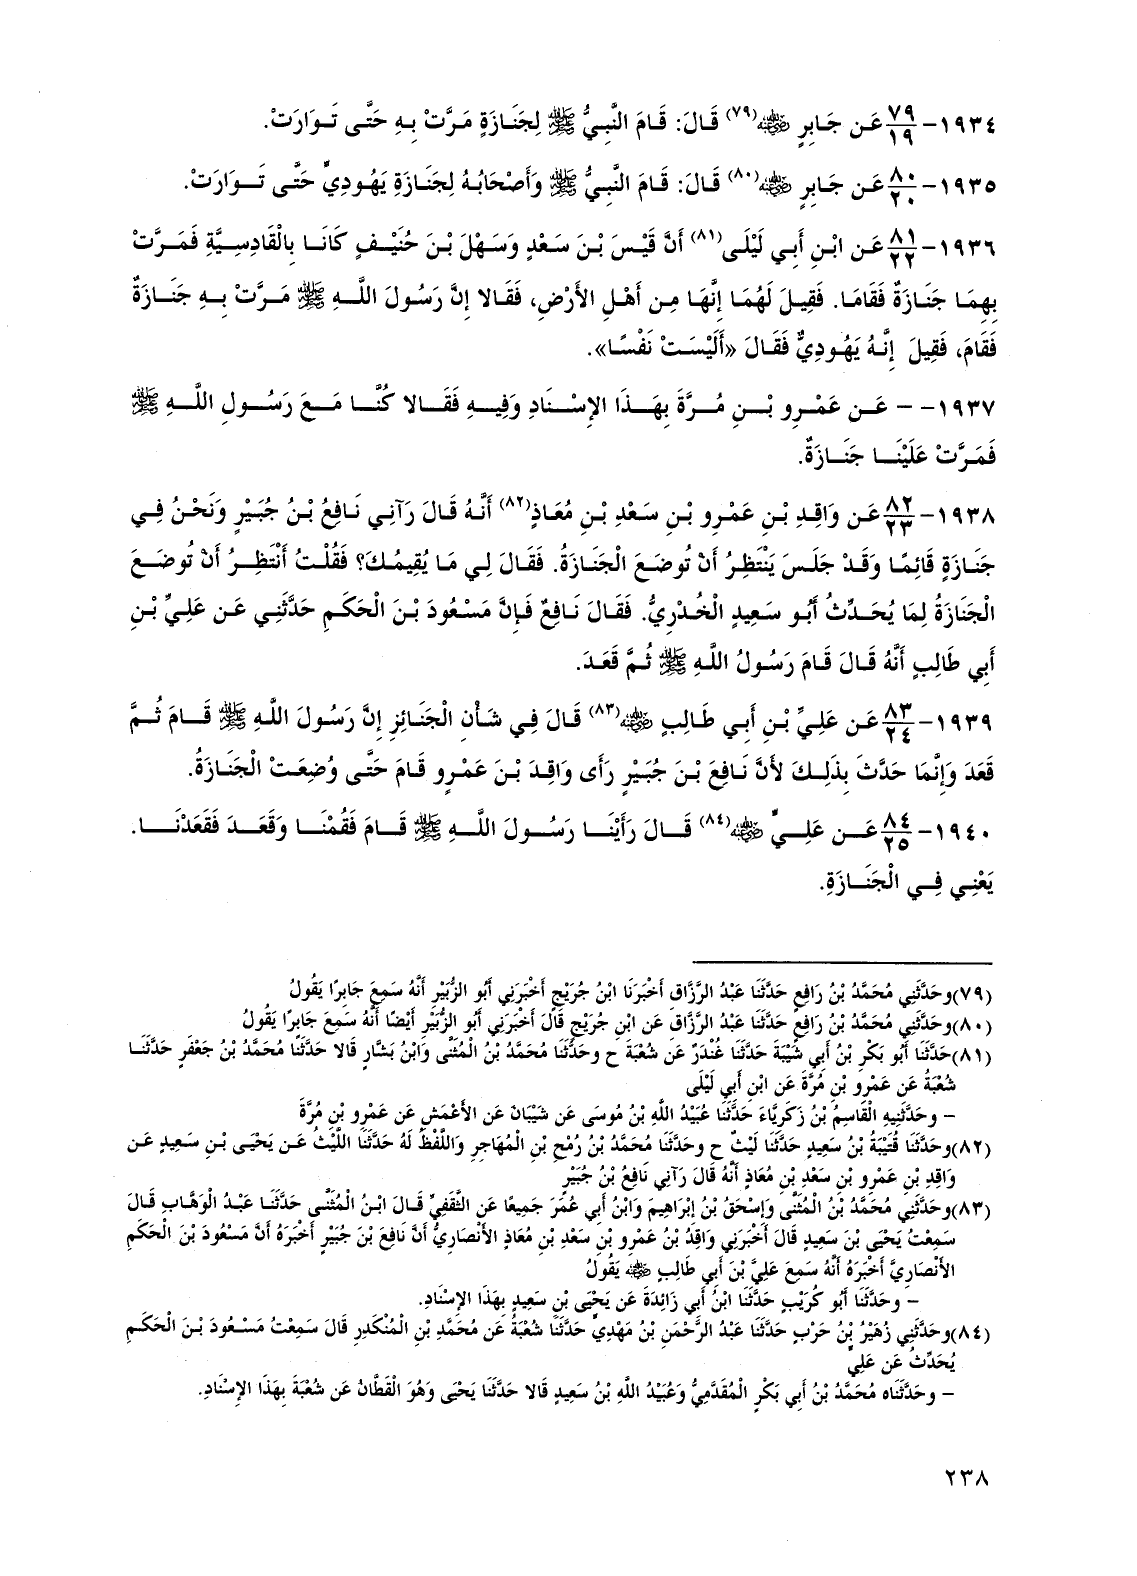 ١٩٣٤- ٧٩/١٩ عَن جَابِرٍ ﷺ(٧٩) قَالَ: قَامَ النَّبِيُّ ﷺ لِجَنَازَةٍ مَرَّتْ بِهِ حَتَّى تَوَارَتْ.
١٩٣٥- ٨٠/٢٠ عَن جَابِرٍ ﷺ(٨٠) قَالَ: قَامَ النَّبِيُّ ﷺ وَأَصْحَابُهُ لِجَنَازَةِ يَهُودِيٍّ حَتَّى تَوَارَتْ.
١٩٣٦- ٨١/٢٢ عَن ابْنِ أَبِي لَيْلَى(٨١) أَنَّ قَيْسَ بْنَ سَعْدٍ وَسَهْلَ بْنَ حُنَيْفٍ كَانَا بِالْقَادِسِيَّةِ فَمَرَّتْ
بِهِمَا جَنَازَةٌ فَقَامَا. فَقِيلَ لَهُمَا إِنَّهَا مِن أَهْلِ الأَرْضِ، فَقَالا إِنَّ رَسُولَ اللَّهِ ﷺ مَرَّتْ بِهِ جَنَازَةٌ
فَقَامَ، فَقِيلَ إِنَّهُ يَهُودِيٌّ فَقَالَ «أَلَيْسَتْ نَفْسًا».
١٩٣٧- - عَن عَمْرِو بْنِ مُرَّةَ بِهَذَا الإِسْنَادِ وَفِيهِ فَقَالا كُنَّا مَعَ رَسُولِ اللَّهِ ﷺ
فَمَرَّتْ عَلَيْنَا جَنَازَةٌ.
١٩٣٨- ٨٢/٢٣ عَن وَاقِدِ بْنِ عَمْرِو بْنِ سَعْدِ بْنِ مُعَاذٍ(٨٢) أَنَّهُ قَالَ رَآنِي نَافِعُ بْنُ جُبَيْرٍ وَنَحْنُ فِي
جَنَازَةٍ قَائِمًا وَقَدْ جَلَسَ يَنْتَظِرُ أَنْ تُوضَعَ الْجَنَازَةُ. فَقَالَ لِي مَا يُقِيمُكَ؟ فَقُلْتُ أَنْتَظِرُ أَنْ تُوضَعَ
الْجَنَازَةُ لِمَا يُحَدِّثُ أَبُو سَعِيدٍ الْخُدْرِيُّ. فَقَالَ نَافِعٌ فَإِنَّ مَسْعُودَ بْنَ الْحَكَمِ حَدَّثَنِي عَن عَلِيِّ بْنِ
أَبِي طَالِبٍ أَنَّهُ قَالَ قَامَ رَسُولُ اللَّهِ ﷺ ثُمَّ قَعَدَ.
١٩٣٩- ٨٣/٢٤ عَن عَلِيِّ بْنِ أَبِي طَالِبٍ ﷺ(٨٣) قَالَ فِي شَأْنِ الْجَنَائِزِ إِنَّ رَسُولَ اللَّهِ ﷺ قَامَ ثُمَّ
قَعَدَ وَإِنَّمَا حَدَّثَ بِذَلِكَ لأَنَّ نَافِعَ بْنَ جُبَيْرٍ رَأَى وَاقِدَ بْنَ عَمْرٍو قَامَ حَتَّى وُضِعَتْ الْجَنَازَةُ.
١٩٤٠- ٨٤/٢٥ عَن عَلِيٍّ ﷺ(٨٤) قَالَ رَأَيْنَا رَسُولَ اللَّهِ ﷺ قَامَ فَقُمْنَا وَقَعَدَ فَقَعَدْنَا.
يَعْنِي فِي الْجَنَازَةِ.
(٧٩) وحَدَّثَنِي مُحَمَّدُ بْنُ رَافِعٍ حَدَّثَنَا عَبْدُ الرَّزَّاقِ أَخْبَرَنَا ابْنُ جُرَيْجٍ أَخْبَرَنِي أَبُو الزُّبَيْرِ أَنَّهُ سَمِعَ جَابِرًا يَقُولُ
(٨٠) وحَدَّثَنِي مُحَمَّدُ بْنُ رَافِعٍ حَدَّثَنَا عَبْدُ الرَّزَّاقِ عَن ابْنِ جُرَيْجٍ قَالَ أَخْبَرَنِي أَبُو الزُّبَيْرِ أَيْضًا أَنَّهُ سَمِعَ جَابِرًا يَقُولُ
(٨١) حَدَّثَنَا أَبُو بَكْرِ بْنُ أَبِي شَيْبَةَ حَدَّثَنَا غُنْدَرٌ عَن شُعْبَةَ ح وحَدَّثَنَا مُحَمَّدُ بْنُ الْمُثَنَّى وَابْنُ بَشَّارٍ قَالا حَدَّثَنَا مُحَمَّدُ بْنُ جَعْفَرٍ حَدَّثَنَا
شُعْبَةُ عَن عَمْرِو بْنِ مُرَّةَ عَن ابْنِ أَبِي لَيْلَى
- وحَدَّثَنِيهِ الْقَاسِمُ بْنُ زَكَرِيَّاءَ حَدَّثَنَا عُبَيْدُ اللَّهِ بْنُ مُوسَى عَن شَيْبَانَ عَن الأَعْمَشِ عَن عَمْرِو بْنِ مُرَّةَ
(٨٢) وحَدَّثَنَا قُتَيْبَةُ بْنُ سَعِيدٍ حَدَّثَنَا لَيْثٌ ح وحَدَّثَنَا مُحَمَّدُ بْنُ رُمْحِ بْنِ الْمُهَاجِرِ وَاللَّفْظُ لَهُ حَدَّثَنَا اللَّيْثُ عَن يَحْيَى بْنِ سَعِيدٍ عَن
وَاقِدِ بْنِ عَمْرِو بْنِ سَعْدِ بْنِ مُعَاذٍ أَنَّهُ قَالَ رَآنِي نَافِعُ بْنُ جُبَيْرٍ
(٨٣) وحَدَّثَنِي مُحَمَّدُ بْنُ الْمُثَنَّى وَإِسْحَقُ بْنُ إِبْرَاهِيمَ وَابْنُ أَبِي عُمَرَ جَمِيعًا عَن الثَّقَفِيِّ قَالَ ابْنُ الْمُثَنَّى حَدَّثَنَا عَبْدُ الْوَهَّابِ قَالَ
سَمِعْتُ يَحْيَى بْنَ سَعِيدٍ قَالَ أَخْبَرَنِي وَاقِدُ بْنُ عَمْرِو بْنِ سَعْدِ بْنِ مُعَاذٍ الأَنْصَارِيُّ أَنَّ نَافِعَ بْنَ جُبَيْرٍ أَخْبَرَهُ أَنَّ مَسْعُودَ بْنَ الْحَكَمِ
الأَنْصَارِيَّ أَخْبَرَهُ أَنَّهُ سَمِعَ عَلِيَّ بْنَ أَبِي طَالِبٍ ﷺ يَقُولُ
- وحَدَّثَنَا أَبُو كُرَيْبٍ حَدَّثَنَا ابْنُ أَبِي زَائِدَةَ عَن يَحْيَى بْنِ سَعِيدٍ بِهَذَا الإِسْنَادِ.
(٨٤) وحَدَّثَنِي زُهَيْرُ بْنُ حَرْبٍ حَدَّثَنَا عَبْدُ الرَّحْمَنِ بْنُ مَهْدِيٍّ حَدَّثَنَا شُعْبَةُ عَن مُحَمَّدِ بْنِ الْمُنْكَدِرِ قَالَ سَمِعْتُ مَسْعُودَ بْنَ الْحَكَمِ
يُحَدِّثُ عَن عَلِيٍّ
- وحَدَّثَنَاه مُحَمَّدُ بْنُ أَبِي بَكْرٍ الْمُقَدَّمِيُّ وَعُبَيْدُ اللَّهِ بْنُ سَعِيدٍ قَالا حَدَّثَنَا يَحْيَى وَهُوَ الْقَطَّانُ عَن شُعْبَةَ بِهَذَا الإِسْنَادِ.
٢٣٨